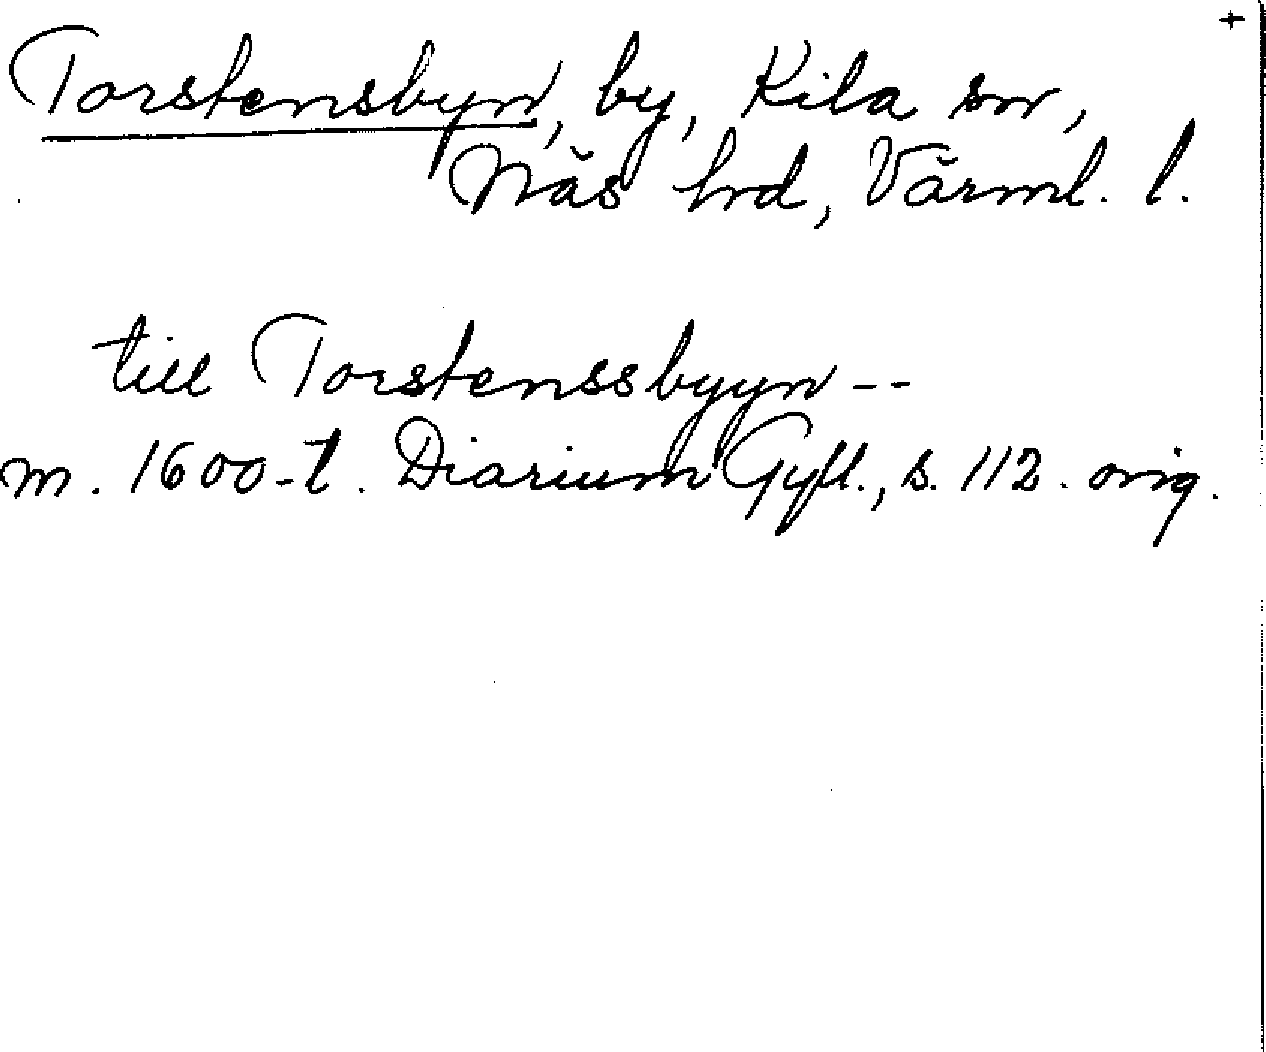 +
Torstensbyn, by, Kila sn,
Näs hd, Värml. l.
till Torstenssbyyn --
m. 1600-t. Diarium Gyll., s. 112. orig.